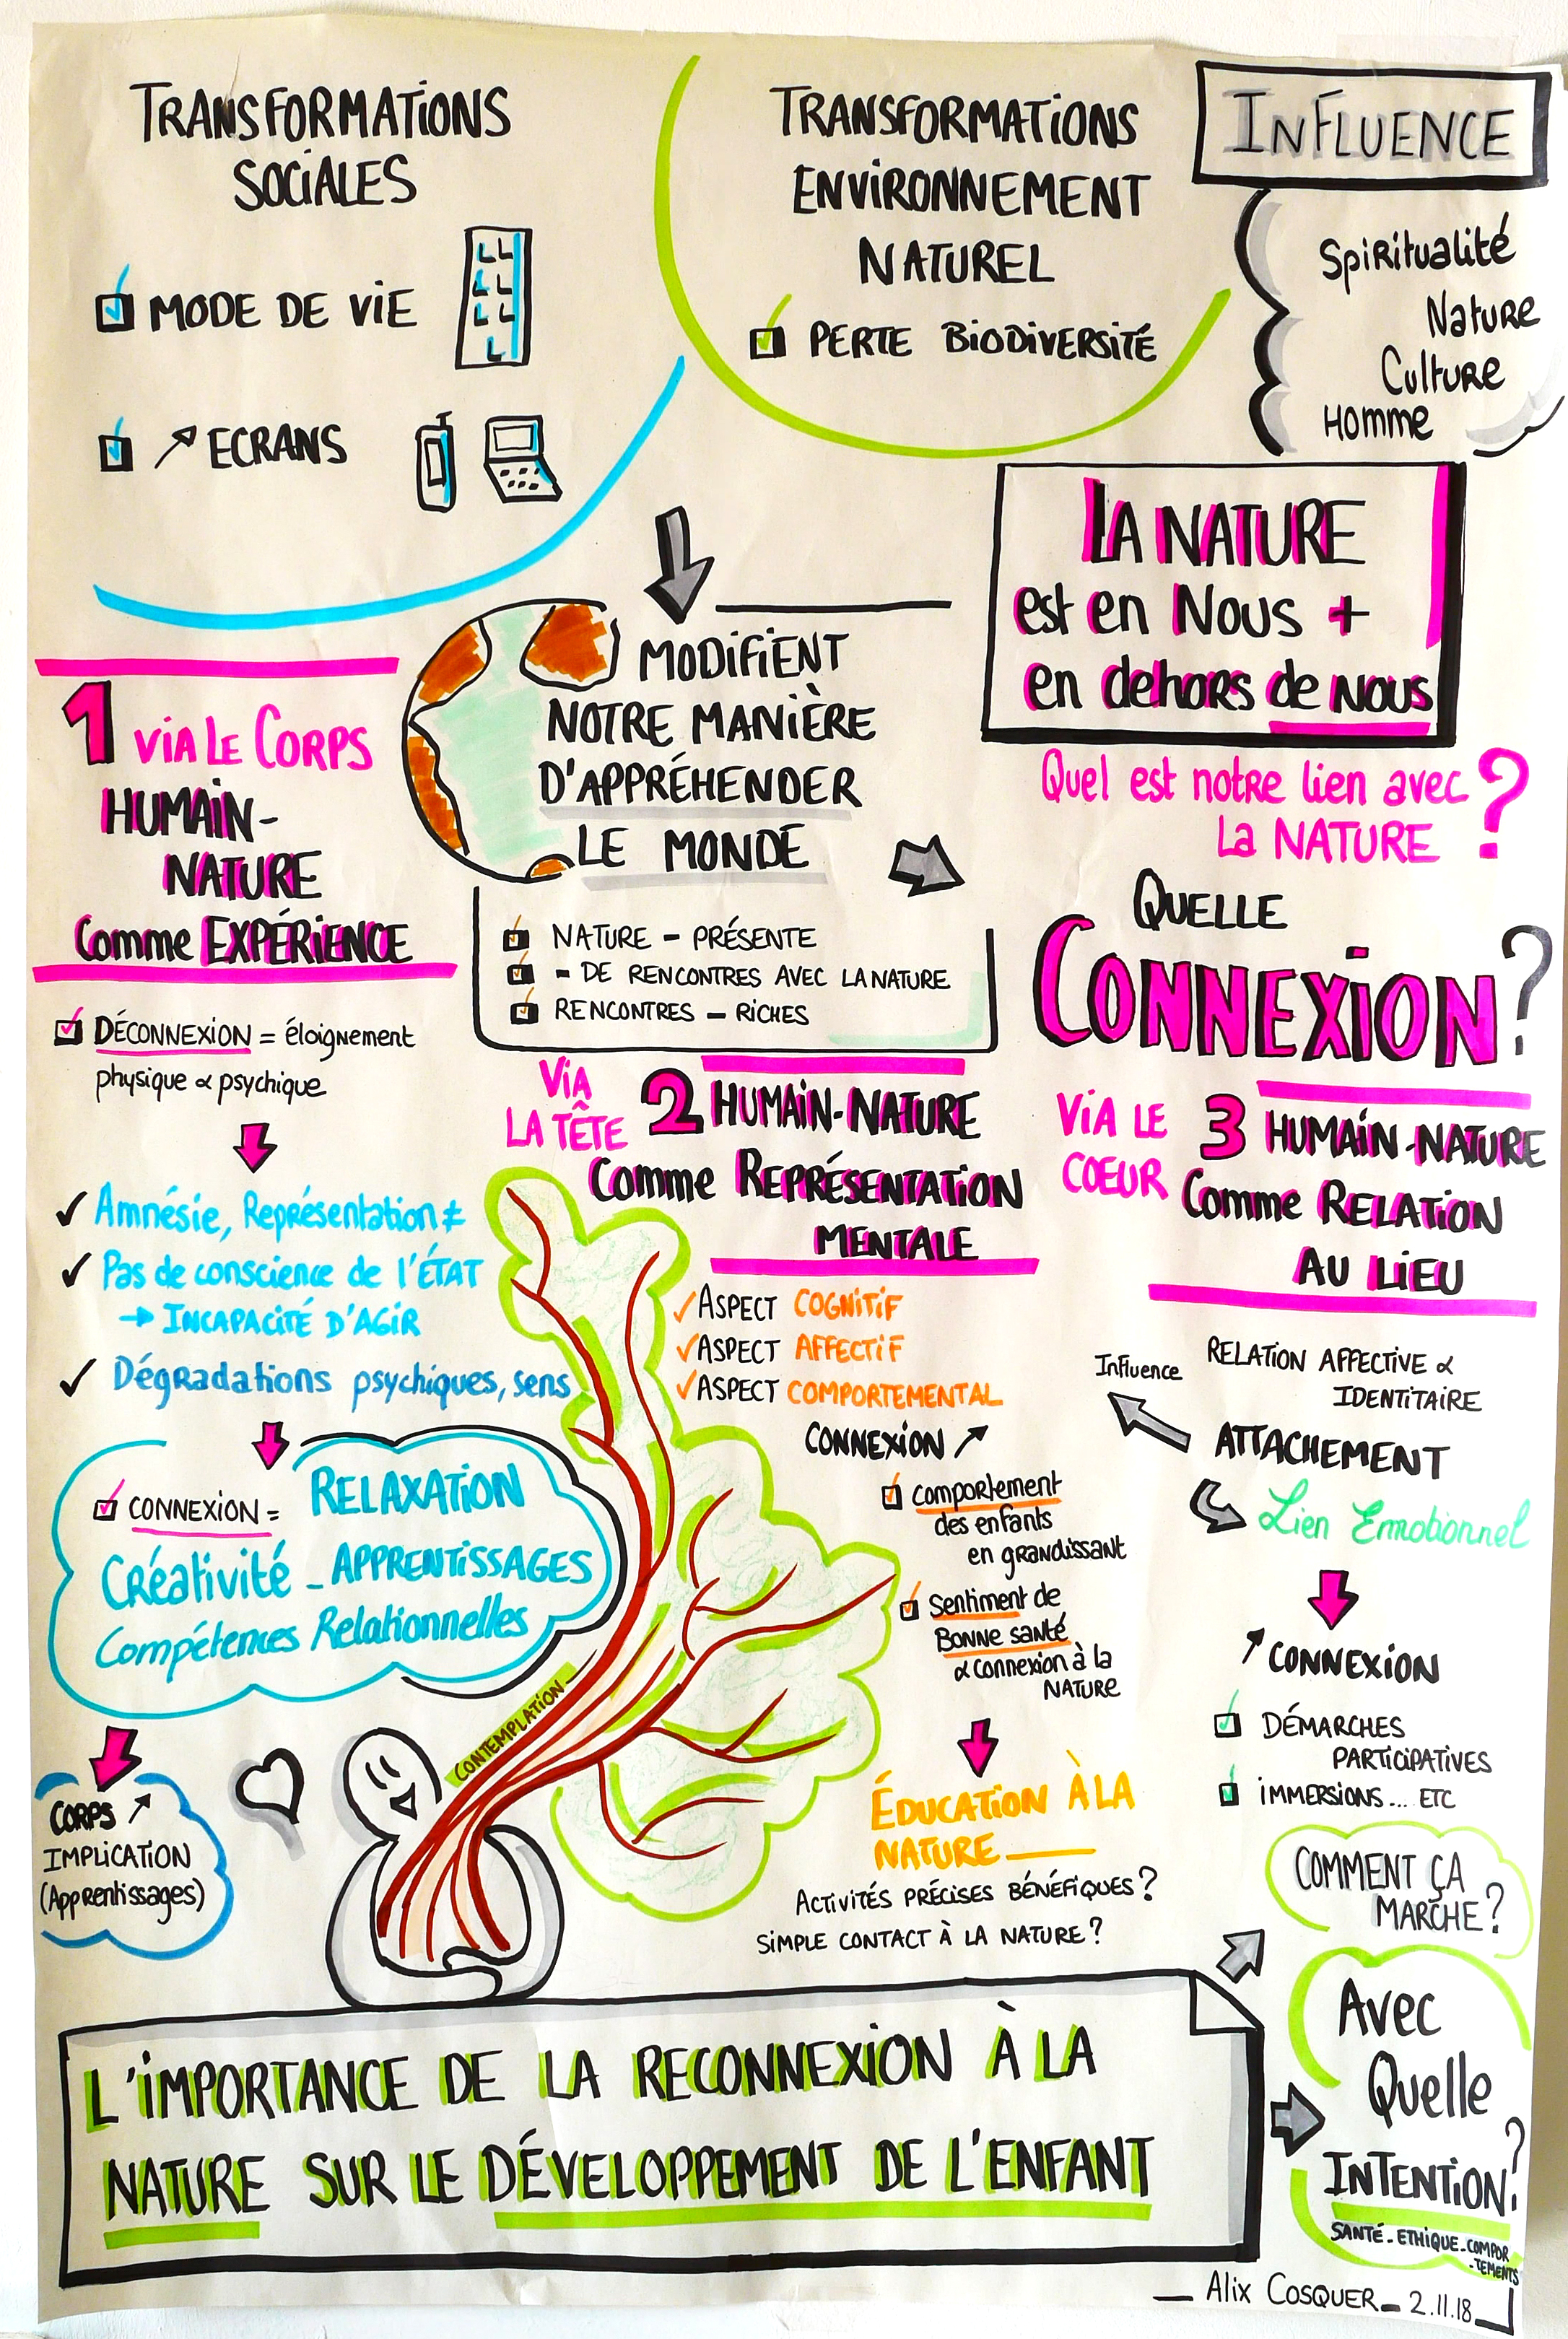 TRANSFORMATIONS
SOCIALES
MODE DE VIE
↗ ECRANS
TRANSFORMATIONS
ENVIRONNEMENT
NATUREL
PERTE BIODIVERSITÉ
INFLUENCE
Spiritualité
Nature
Culture
Homme
LA NATURE
est en Nous +
en dehors de NOUS
MODIFIENT
NOTRE MANIÈRE
D'APPRÉHENDER
LE MONDE
NATURE - PRÉSENTE
- DE RENCONTRES AVEC LA NATURE
RENCONTRES - RICHES
Quel est notre lien avec
La NATURE ?
QUELLE
CONNEXION ?
1 VIA LE CORPS
HUMAIN-
NATURE
Comme EXPÉRIENCE
DÉCONNEXION = éloignement
physique & psychique
✓ Amnésie, Représentation ≠
✓ Pas de conscience de l'ÉTAT
→ INCAPACITÉ D'AGIR
✓ Dégradations psychiques, sens
CONNEXION = RELAXATION
Créativité - APPRENTISSAGES
Compétences Relationnelles
CORPS ↗
IMPLICATION
(Apprentissages)
CONTEMPLATION
VIA
LA TÊTE
2 HUMAIN-NATURE
Comme REPRÉSENTATION
MENTALE
✓ ASPECT COGNITIF
✓ ASPECT AFFECTIF
✓ ASPECT COMPORTEMENTAL
CONNEXION ↗
comportement
des enfants
en grandissant
Sentiment de
Bonne santé
& Connexion à la
NATURE
ÉDUCATION À LA
NATURE
ACTIVITÉS PRÉCISES BÉNÉFIQUES ?
SIMPLE CONTACT À LA NATURE ?
VIA LE
COEUR
3 HUMAIN-NATURE
Comme RELATION
AU LIEU
RELATION AFFECTIVE &
IDENTITAIRE
Influence
ATTACHEMENT
Lien Emotionnel
↗ CONNEXION
DÉMARCHES
PARTICIPATIVES
IMMERSIONS... ETC
COMMENT ÇA
MARCHE ?
Avec
Quelle
INTENTION ?
SANTÉ - ETHIQUE - COMPOR
-TEMENTS
L'IMPORTANCE DE LA RECONNEXION À LA
NATURE SUR LE DÉVELOPPEMENT DE L'ENFANT
Alix COSQUER - 2.11.18